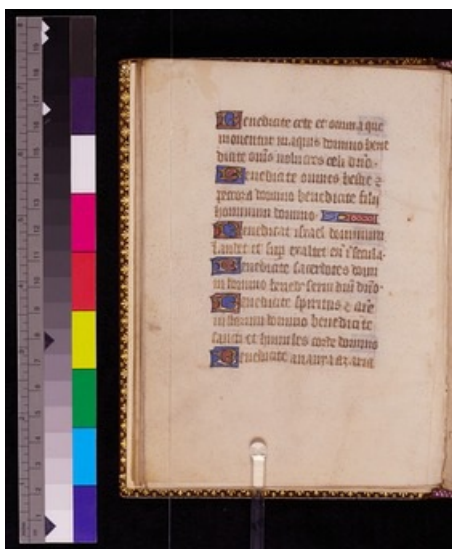 Benedicite cete et omnia que
mouentur in aquis domino bene
dicite oms uolucres celi dno.
Benedicite omnes bestie
pecora domino benedicite filii
hominum domino.
Benedicat israel dominum
laudet et sup exaltet eu i secula
Benedicite sacerdotes domi
ni domino bened serui dni dno.
Benedicite spiritus aie
iustorum domino benedicite
sancti et humiles corde domino
Benedicite anania azaria